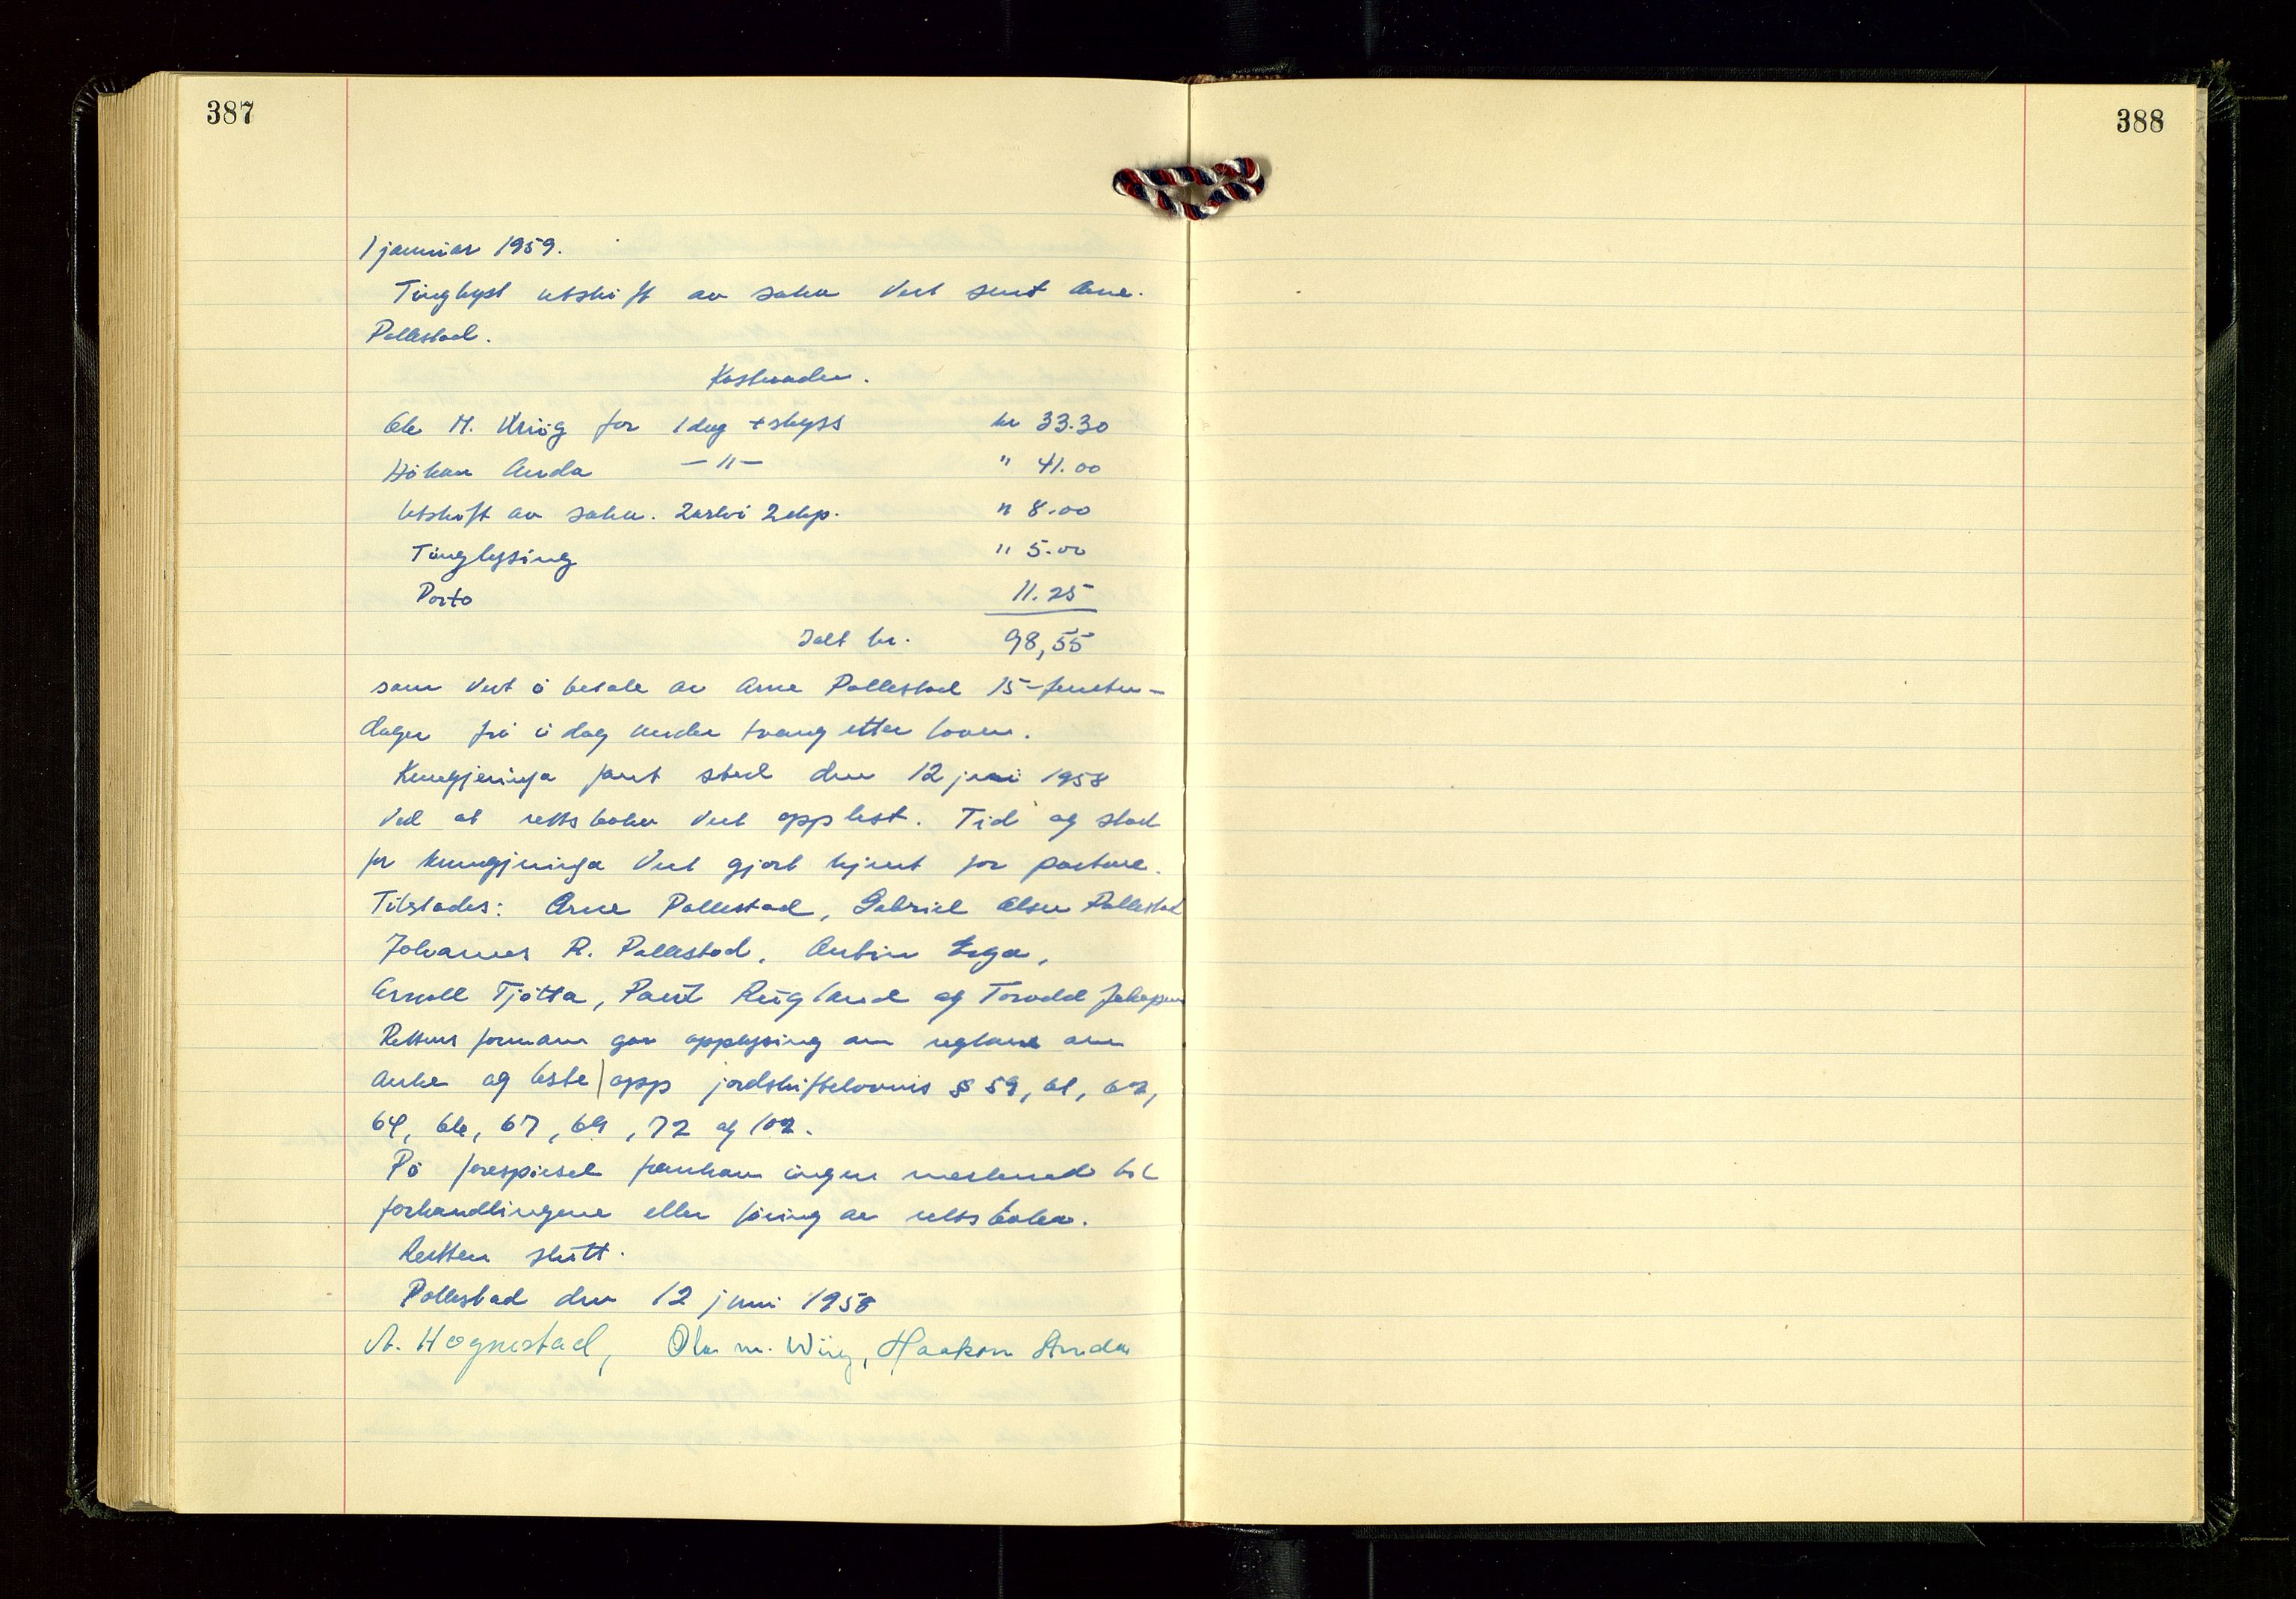 387
388
1 januar 1959.
Tinglyst utskift av saka vert sent Arne
Pollestad.
Kostnader.
Ole M. Wiig for 1 dag + skyss kr 33.30
Håkon Anda —"— " 41.00
Utskift av saka. 2 ark i 2 eksp. " 8.00
Tinglysing " 5.00
Porto 11.25
Ialt kr. 98,55
som vert å betale av Arne Pollestad 15 - femten -
dager frå i dag under tvang etter loven.
Kunngjeringa fant sted den 12 juni 1958
ved at rettsboka vert opplest. Tid og stad
for kunngjeringa vert gjort kjent for partane.
Tilstades: Arne Pollestad, Gabriel Olsen Pollestad
Johannes R. Pollestad, Erga,
Arnold Tjøtta, Paul Rugland og Torvald Jakobsen
Rettens formann gav opplysing om reglane om
anke og leste opp jordskifteloven's § 59, 61, 62,
64, 66, 67, 69, 72 og 102.
På forespørsel framkom ingen merknad til
forhandlingene eller føring av rettsboka.
Retten slutt.
Pollestad den 12 juni 1958
A. Hognestad, Ola M. Wiig, Haakon Anda